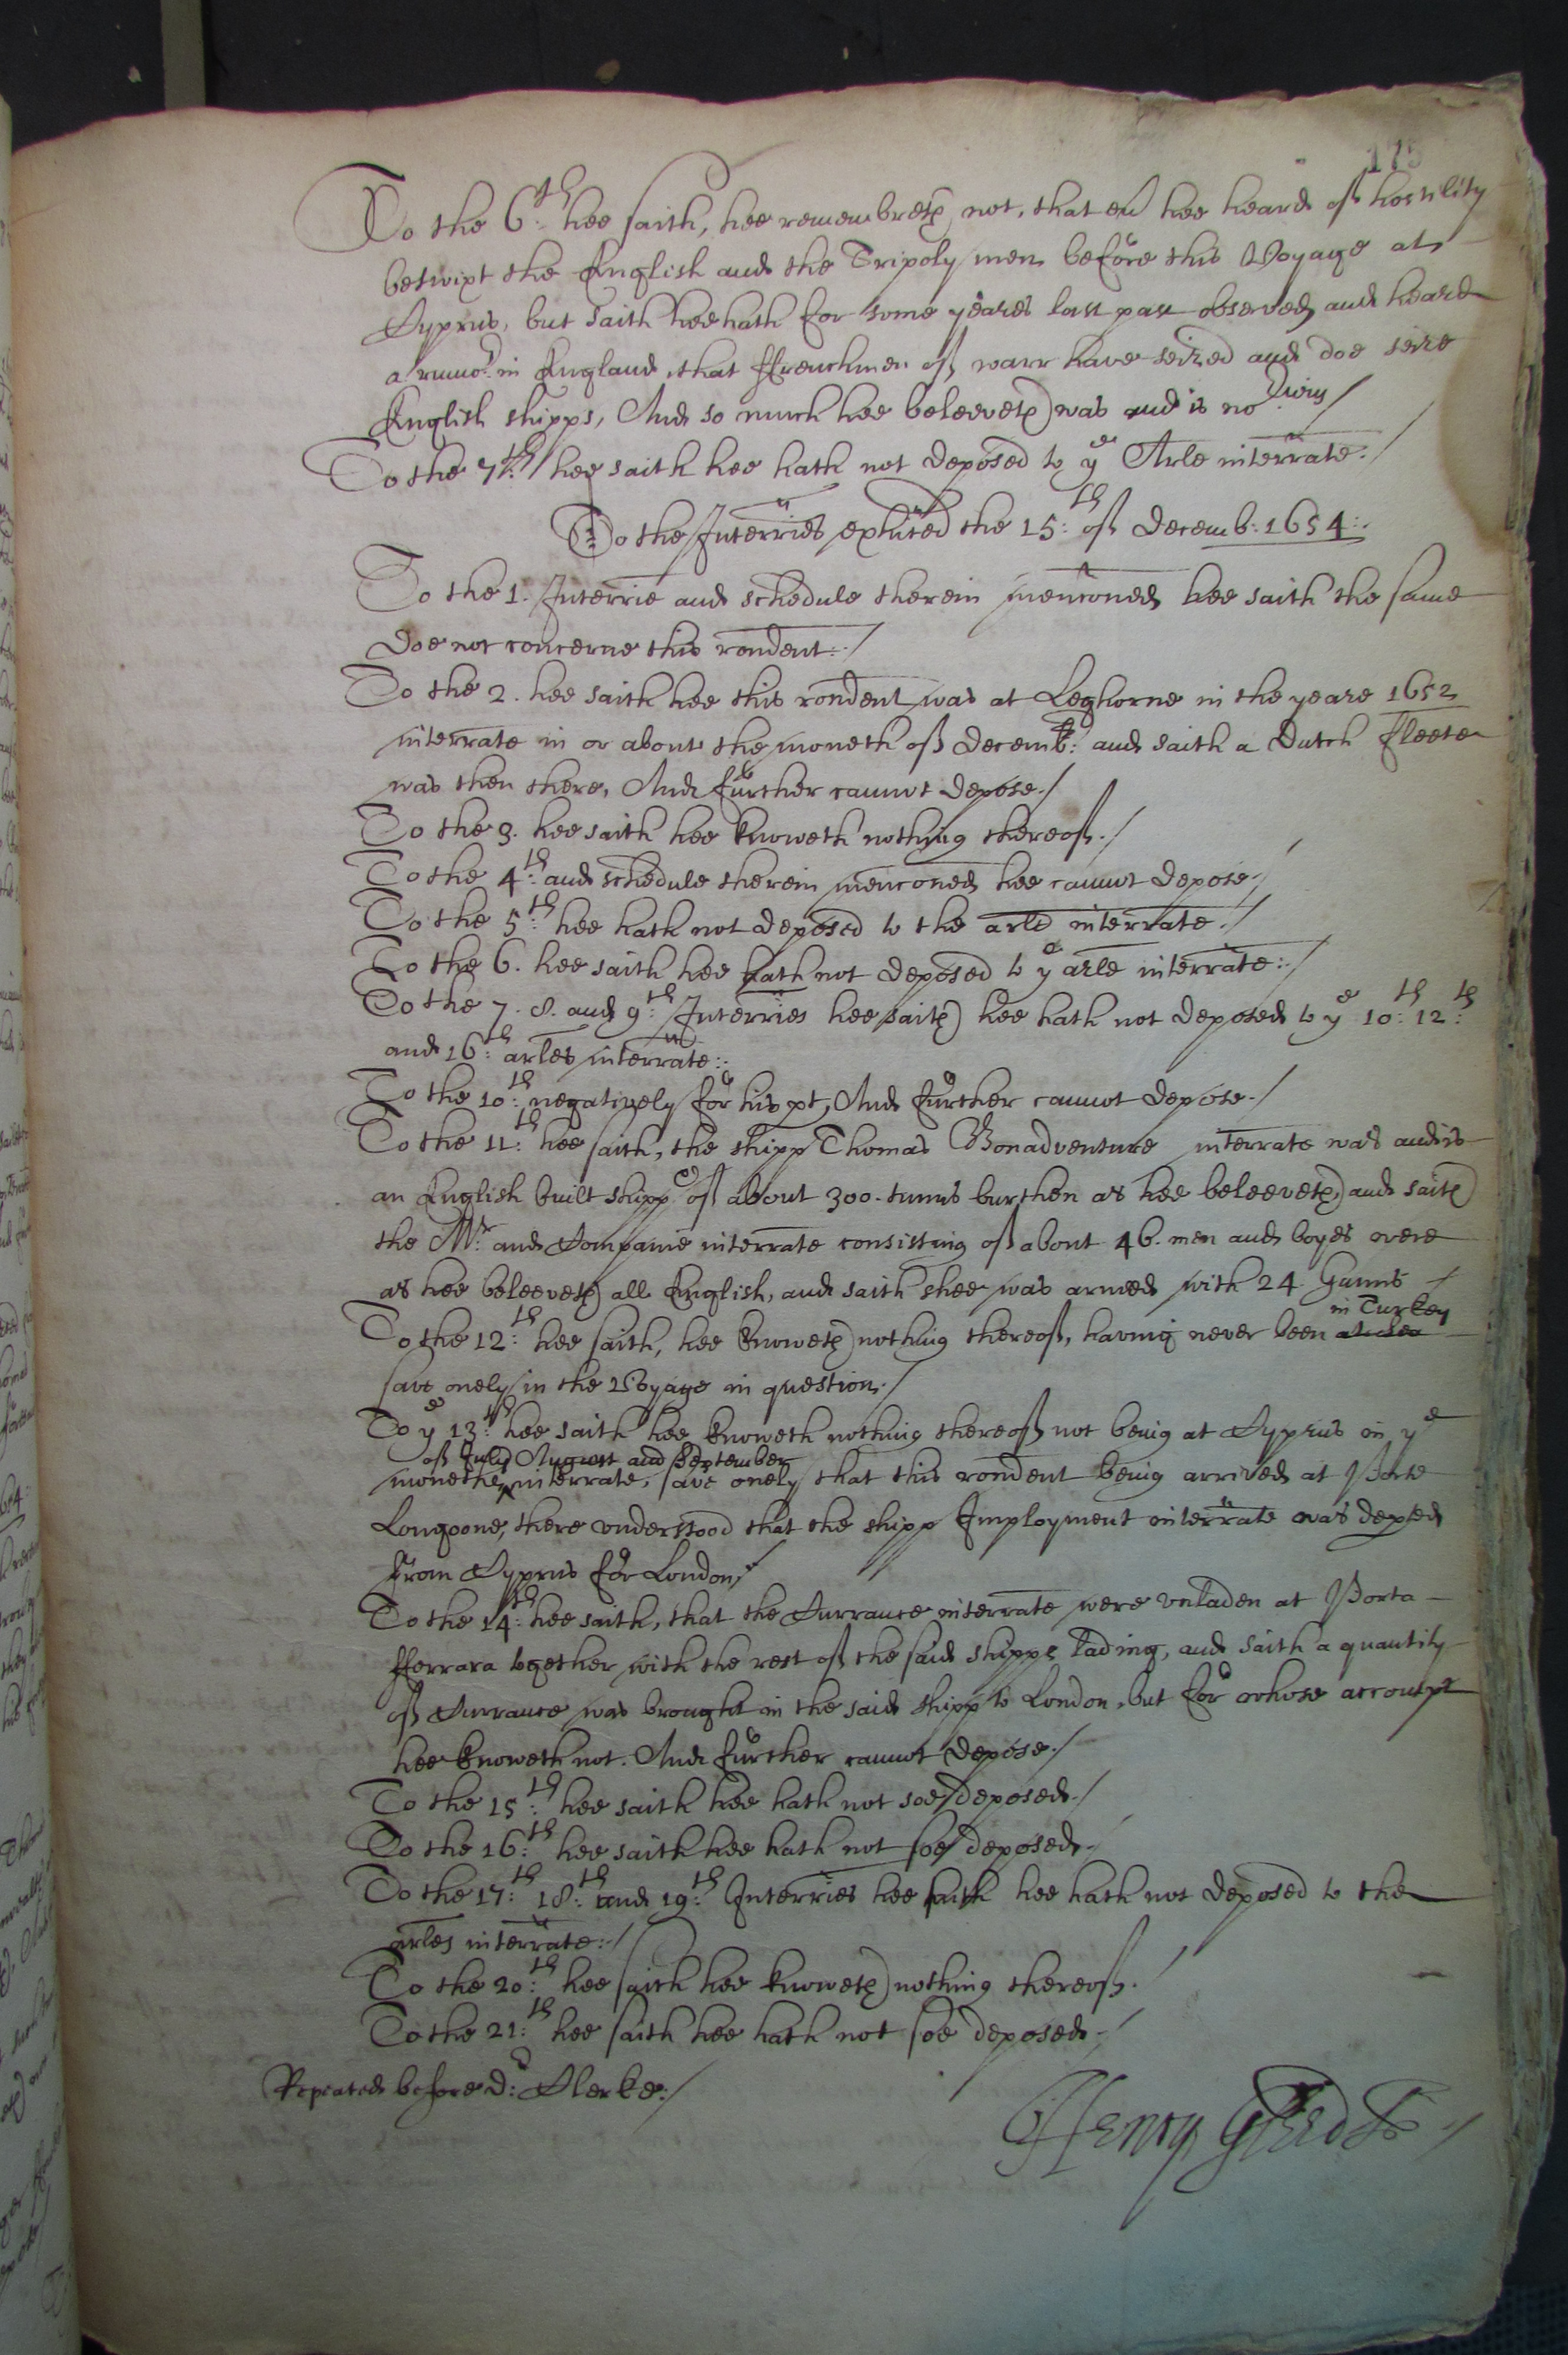 175
To the 6:th hee saith, hee remembreth not, that ever hee heard of hostility
betwixt the English and the Tripoly men before this Voyage at
Cyprus, but saith hee hath for some yeares last past observed and heard
a rumor in England, that ffrenchmen of warr have seized and doe seize
English shipps, And so much hee beleeveth was and is no
To the 7th: hee saith hee hath not deposed to ye Arle interrate./
To the Interries exhited the 15:th of Decemb: 1654:.
To the 1. Interrie and schedule therein menconed hee saith the same
doe not concerne this rondent:./
To the 2. hee saith hee this rondent was at Leghorne in the yeare 1652
interrate in or about the moneth of Decemb: and saith a Dutch fleete
was then there, And further cannot depose./
To the 3. hee saith hee knoweth nothing thereof./
To the 4:th and schedule therein menconed hee cannot depose./
To the 5:th hee hath not deposed to the arle interrate./
To the 6. hee saith hee hath not deposed to ye arle interrate:./
To the 7. 8. and 9:th Interries hee saith hee hath not deposed to ye 10:th 12:th
and 16:th arles interrate:.
To the 10:th negatively for his pt, And further cannot depose./
To the 11:th hee saith, the shipp Thomas Bonadventure interrate was and is
an English built shipp of about 300. tunns burthen as hee beleeveth, and saith
the Mr: and Companie interrate consisting of about 46. men and boyes were
as hee beleeveth all English, and saith shee was armed with 24 Gunns
To the 12:th hee saith, hee knoweth nothing thereof, having never been at sea in Turkey
save onely in the Voyage in question./
To ye 13:th hee saith hee knoweth nothing thereof not being at Cyprus in ye
of July August and September
moneths interrate, save onely that this rondent being arrived at Porte
Longoone, there understood that the shipp Imployment interrate was depted
from Cyprus for London/
To the 14:th hee saith, that the Currance interrate were unladen at Porta
fferrara together with the rest of the said shipps lading, and saith a quantity
of Currance was brought in the said shipp to London, but for whose accompt
hee knoweth not. And further cannot depose./
To the 15:th hee saith hee hath not soe deposed./
To the 16:th hee saith hee hath not soe deposed./
To the 17:th 18:th and 19:th Interries hee saith hee hath not deposed to the
arles interrate:./
To the 20:th hee saith hee knoweth nothing thereof./
To the 21:th hee saith hee hath not soe deposed./
Repeated before Dr: Clerke:/
Henry